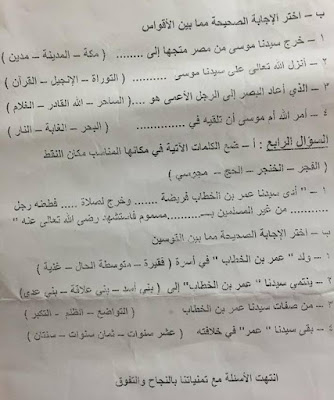 ب – اختر الإجابة الصحيحة مما بين الأقواس
١ – خرج سيدنا موسى من مصر متجها إلى ........ ( مكة – المدينة – مدين )
٢ – أنزل الله تعالى على سيدنا موسى .......... ( التوراة – الإنجيل – القرآن )
٣ – الذي أعاد البصر إلى الرجل الأعمى هو .... ( الساحر – الله القادر – الغلام )
٤ – أمر الله أم موسى أن تلقيه في .............. ( البحر – الغابة – النار )
السؤال الرابع : أ – ضع الكلمات الآتية في مكانها المناسب مكان النقط
( الفجر – الخنجر – الحج – مجوسي )
١ – " أدى سيدنا عمر بن الخطاب فريضة ....... وخرج لصلاة ..... فطعنه رجل
............ من غير المسلمين بـ..........مسموم فاستشهد رضى الله تعالى عنه "
ب – اختر الإجابة الصحيحة مما بين القوسين
١ – ولد " عمر بن الخطاب " في أسرة ( فقيرة – متوسطة الحال – غنية )
٢ – ينتمي سيدنا " عمر بن الخطاب" إلى ( بني أسد – بني علاثة – بني عدي)
٣ – من صفات سيدنا عمر بن الخطاب ( التواضع – الظلم – التكبر )
٤ – بقى سيدنا " عمر" في خلافته ( عشر سنوات – ثمان سنوات – سنتان )
انتهت الأسئلة مع تمنياتنا بالنجاح والتفوق